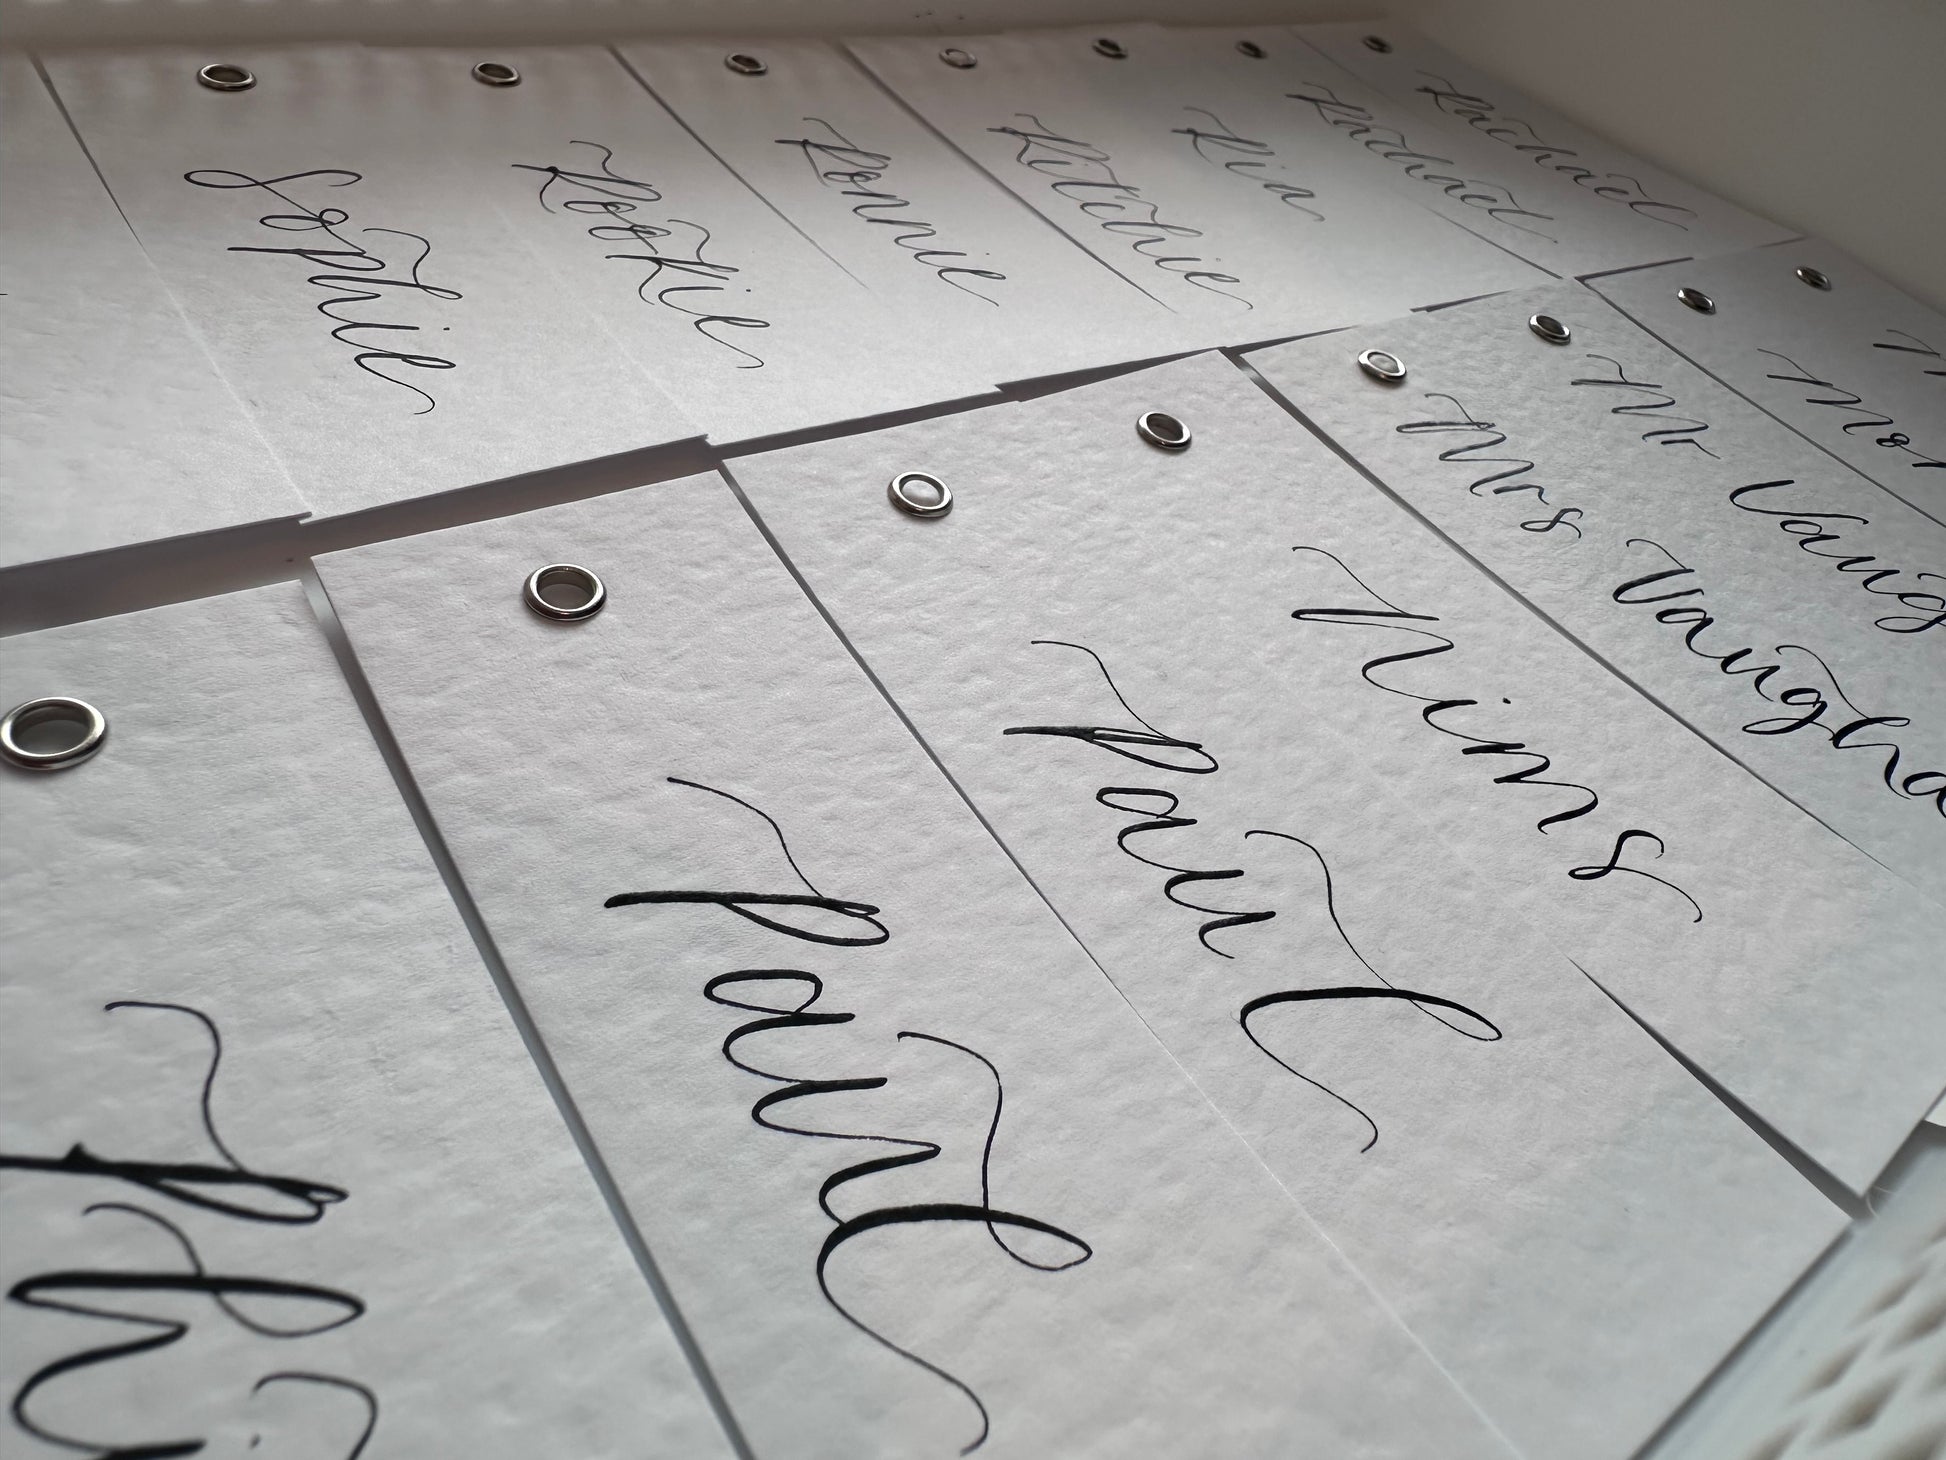 Sophie
Rookie
Ronnie
Ritchie
Ria
Rachael
Rachael
Paul
Paul
Nims
Mrs Vaugha
Mr Vaug